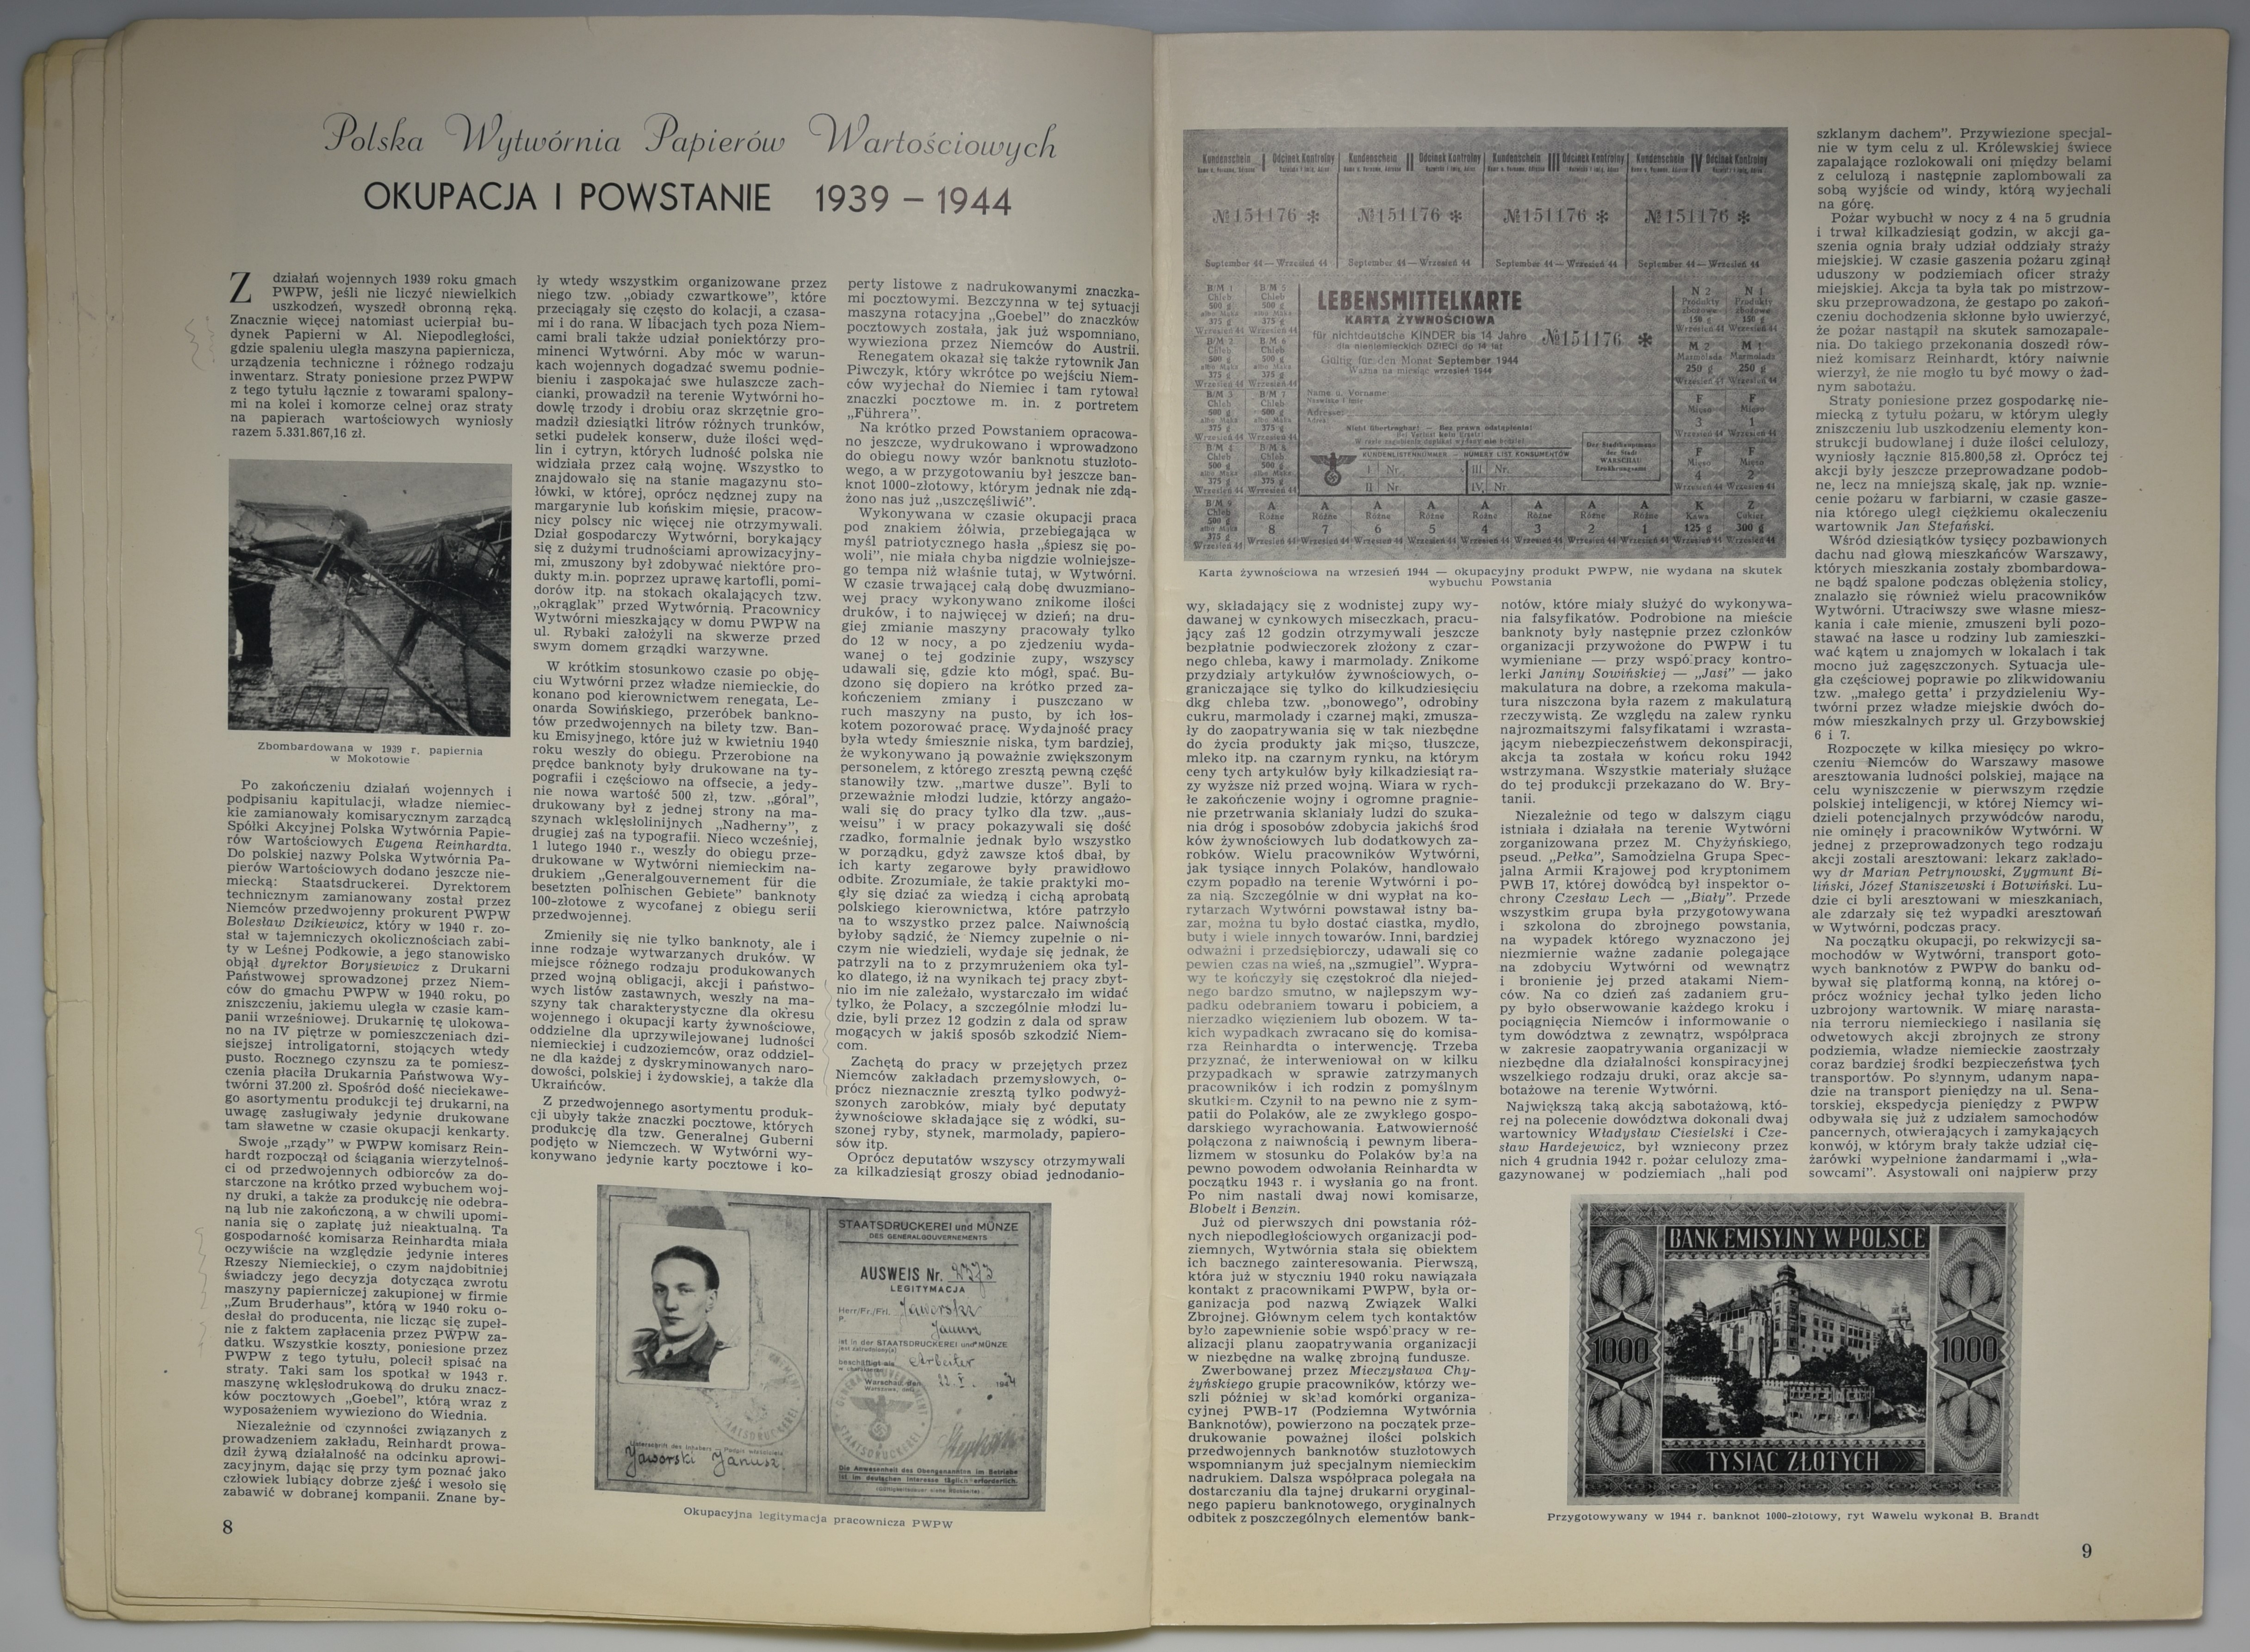 Polska Wytwórnia Papierów Wartościowych
OKUPACJA I POWSTANIE 1939 — 1944
Z działań wojennych 1939 roku gmach
PWPW, jeśli nie liczyć niewielkich
uszkodzeń, wyszedł obronną ręką.
Znacznie więcej natomiast ucierpiał bu-
dynek Papierni w Al. Niepodległości,
gdzie spaleniu uległa maszyna papiernicza,
urządzenia techniczne i różnego rodzaju
inwentarz. Straty poniesione przez PWPW
z tego tytułu łącznie z towarami spalony-
mi na kolei i komorze celnej oraz straty
na papierach wartościowych wyniosły
razem 5.331.867,16 zł.
Zbombardowana w 1939 r. papiernia
w Mokotowie
Po zakończeniu działań wojennych i
podpisaniu kapitulacji, władze niemiec-
kie zamianowały komisarycznym zarządcą
Spółki Akcyjnej Polska Wytwórnia Papie-
rów Wartościowych Eugena Reinhardta.
Do polskiej nazwy Polska Wytwórnia Pa-
pierów Wartościowych dodano jeszcze nie-
miecką: Staatsdruckerei. Dyrektorem
technicznym zamianowany został przez
Niemców przedwojenny prokurent PWPW
Bolesław Dzikiewicz, który w 1940 r. zo-
stał w tajemniczych okolicznościach zabi-
ty w Leśnej Podkowie, a jego stanowisko
objął dyrektor Borysiewicz z Drukarni
Państwowej sprowadzonej przez Niem-
ców do gmachu PWPW w 1940 roku, po
zniszczeniu, jakiemu uległa w czasie kam-
panii wrześniowej. Drukarnię tę ulokowa-
no na IV piętrze w pomieszczeniach dzi-
siejszej introligatorni, stojących wtedy
pusto. Rocznego czynszu za te pomiesz-
czenia płaciła Drukarnia Państwowa Wy-
twórni 37.200 zł. Spośród dość nieciekawe-
go asortymentu produkcji tej drukarni, na
uwagę zasługiwały jedynie drukowane
tam sławetne w czasie okupacji kenkarty.
Swoje „rządy” w PWPW komisarz Rein-
hardt rozpoczął od ściągania wierzytelnoś-
ci od przedwojennych odbiorców za do-
starczone na krótko przed wybuchem woj-
ny druki, a także za produkcję nie odebra-
ną lub nie zakończoną, a w chwili upomi-
nania się o zapłatę już nieaktualną. Ta
gospodarność komisarza Reinhardta miała
oczywiście na względzie jedynie interes
Rzeszy Niemieckiej, o czym najdobitniej
świadczy jego decyzja dotycząca zwrotu
maszyny papierniczej zakupionej w firmie
„Zum Bruderhaus”, którą w 1940 roku o-
desłał do producenta, nie licząc się zupeł-
nie z faktem zapłacenia przez PWPW za-
datku. Wszystkie koszty, poniesione przez
PWPW z tego tytułu, polecił spisać na
straty. Taki sam los spotkał w 1943 r.
maszynę wklęsłodrukową do druku znacz-
ków pocztowych „Goebel”, którą wraz z
wyposażeniem wywieziono do Wiednia.
Niezależnie od czynności związanych z
prowadzeniem zakładu, Reinhardt prowa-
dził żywą działalność na odcinku aprowi-
zacyjnym, dając się przy tym poznać jako
człowiek lubiący dobrze zjeść i wesoło się
zabawić w dobranej kompanii. Znane by-
8
ły wtedy wszystkim organizowane przez
niego tzw. „obiady czwartkowe”, które
przeciągały się często do kolacji, a czasa-
mi i do rana. W libacjach tych poza Niem-
cami brali także udział poniektórzy pro-
minenci Wytwórni. Aby móc w warun-
kach wojennych dogadzać swemu podnie-
bieniu i zaspokajać swe hulaszcze zach-
cianki, prowadził na terenie Wytwórni ho-
dowlę trzody i drobiu oraz skrzętnie gro-
madził dziesiątki litrów różnych trunków,
setki pudełek konserw, duże ilości węd-
lin i cytryn, których ludność polska nie
widziała przez całą wojnę. Wszystko to
znajdowało się na stanie magazynu sto-
łówki, w której, oprócz nędznej zupy na
margarynie lub końskim mięsie, pracow-
nicy polscy nic więcej nie otrzymywali.
Dział gospodarczy Wytwórni, borykający
się z dużymi trudnościami aprowizacyjny-
mi, zmuszony był zdobywać niektóre pro-
dukty m.in. poprzez uprawę kartofli, pomi-
dorów itp. na stokach okalających tzw.
„okrąglak” przed Wytwórnią. Pracownicy
Wytwórni mieszkający w domu PWPW na
ul. Rybaki założyli na skwerze przed
swym domem grządki warzywne.
W krótkim stosunkowo czasie po obję-
ciu Wytwórni przez władze niemieckie, do
konano pod kierownictwem renegata, Le-
onarda Sowińskiego, przeróbek bankno-
tów przedwojennych na bilety tzw. Ban-
ku Emisyjnego, które już w kwietniu 1940
roku weszły do obiegu. Przerobione na
prędce banknoty były drukowane na ty-
pografii i częściowo na offsecie, a jedy-
nie nowa wartość 500 zł, tzw. „góral”,
drukowany był z jednej strony na ma-
szynach wklęsłolinijnych „Nadherny”, z
drugiej zaś na typografii. Nieco wcześniej,
1 lutego 1940 r., weszły do obiegu prze-
drukowane w Wytwórni niemieckim na-
drukiem „Generalgouvernement für die
besetzten polnischen Gebiete” banknoty
100-złotowe z wycofanej z obiegu serii
przedwojennej.
Zmieniły się nie tylko banknoty, ale i
inne rodzaje wytwarzanych druków. W
miejsce różnego rodzaju produkowanych
przed wojną obligacji, akcji i państwo-
wych listów zastawnych, weszły na ma-
szyny tak charakterystyczne dla okresu
wojennego i okupacji karty żywnościowe,
oddzielne dla uprzywilejowanej ludności
niemieckiej i cudzoziemców, oraz oddziel-
ne dla każdej z dyskryminowanych naro-
dowości, polskiej i żydowskiej, a także dla
Ukraińców.
Z przedwojennego asortymentu produk-
cji ubyły także znaczki pocztowe, których
produkcję dla tzw. Generalnej Guberni
podjęto w Niemczech. W Wytwórni wy-
konywano jedynie karty pocztowe i ko-
perty listowe z nadrukowanymi znaczka-
mi pocztowymi. Bezczynna w tej sytuacji
maszyna rotacyjna „Goebel” do znaczków
pocztowych została, jak już wspomniano,
wywieziona przez Niemców do Austrii.
Renegatem okazał się także rytownik Jan
Piwczyk, który wkrótce po wejściu Niem-
ców wyjechał do Niemiec i tam rytował
znaczki pocztowe m. in. z portretem
„Führera”.
Na krótko przed Powstaniem opracowa-
no jeszcze, wydrukowano i wprowadzono
do obiegu nowy wzór banknotu stuzłoto-
wego, a w przygotowaniu był jeszcze ban-
knot 1000-złotowy, którym jednak nie zdą-
żono nas już „uszczęśliwić”.
Wykonywana w czasie okupacji praca
pod znakiem żółwia, przebiegająca w
myśl patriotycznego hasła „śpiesz się po-
woli”, nie miała chyba nigdzie wolniejsze-
go tempa niż właśnie tutaj, w Wytwórni.
W czasie trwającej całą dobę dwuzmiano-
wej pracy wykonywano znikome ilości
druków, i to najwięcej w dzień; na dru-
giej zmianie maszyny pracowały tylko
do 12 w nocy, a po zjedzeniu wyda-
wanej o tej godzinie zupy, wszyscy
udawali się, gdzie kto mógł, spać. Bu-
dzono się dopiero na krótko przed za-
kończeniem zmiany i puszczano w
ruch maszyny na pusto, by ich łos-
kotem pozorować pracę. Wydajność pracy
była wtedy śmiesznie niska, tym bardziej,
że wykonywano ją poważnie zwiększonym
personelem, z którego zresztą pewną część
stanowiły tzw. „martwe dusze”. Byli to
przeważnie młodzi ludzie, którzy angażo-
wali się do pracy tylko dla tzw. „aus-
weisu” i w pracy pokazywali się dość
rzadko, formalnie jednak było wszystko
w porządku, gdyż zawsze ktoś dbał, by
ich karty zegarowe były prawidłowo
odbite. Zrozumiałe, że takie praktyki mo-
gły się dziać za wiedzą i cichą aprobatą
polskiego kierownictwa, które patrzyło
na to wszystko przez palce. Naiwnością
byłoby sądzić, że Niemcy zupełnie o ni-
czym nie wiedzieli, wydaje się jednak, że
patrzyli na to z przymrużeniem oka tyl-
ko dlatego, iż na wynikach tej pracy zbyt-
nio im nie zależało, wystarczało im widać
tylko, że Polacy, a szczególnie młodzi lu-
dzie, byli przez 12 godzin z dala od spraw
mogących w jakiś sposób szkodzić Niem-
com.
Zachętą do pracy w przejętych przez
Niemców zakładach przemysłowych, o-
prócz nieznacznie zresztą tylko podwyż-
szonych zarobków, miały być deputaty
żywnościowe składające się z wódki, su-
szonej ryby, stynek, marmolady, papiero-
sów itp.
Oprócz deputatów wszyscy otrzymywali
za kilkadziesiąt groszy obiad jednodanio-
STAATSDRUCKEREI und MÜNZE
DES GENERALGOUVERNEMENTS
AUSWEIS Nr. 2373
LEGITYMACJA
Herr/Fr./Frl. Jaworski
P.
Janusz
ist in der STAATSDRUCKEREI und MÜNZE
jest zatrudniony(a)
beschäftigt als Arbeiter
w charakterze
Warschau, den 22. V. 1944
Warszawa, dnia
Unterschrift des Inhabers — Podpis właściciela
Jaworski Janusz.
Die Anwesenheit des Obengenannten im Betriebe
ist im deutschen Interesse täglich erforderlich.
Okupacyjna legitymacja pracownicza PWPW
Kundenschein I Odcinek Kontrolny Kundenschein II Odcinek Kontrolny Kundenschein III Odcinek Kontrolny Kundenschein IV Odcinek Kontrolny
№ 151176 * № 151176 * № 151176 * № 151176 *
September 44 — Wrzesień 44 September 44 — Wrzesień 44 September 44 — Wrzesień 44 September 44 — Wrzesień 44
LEBENSMITTELKARTE
KARTA ŻYWNOŚCIOWA
für nichtdeutsche KINDER bis 14 Jahre № 151176 *
dla nieniemieckich DZIECI do 14 lat
Gültig für den Monat September 1944
Ważna na miesiąc wrzesień 1944
Name u. Vorname
Nazwisko i imię
Adresse
Adres
Nicht übertragbar! — Bez prawa odstąpienia!
Bei Verlust kein Ersatz!
W razie zagubienia duplikat wydany nie będzie!
KUNDENLISTENNUMMER — NUMERY LIST KONSUMENTÓW
I Nr. III Nr.
II Nr. IV. Nr.
Der Stadthauptmann
der Stadt
WARSCHAU
Ernährungsamt
B/M 1 B/M 5
Chleb Chleb
500 g 500 g
albo Mąka albo Mąka
375 g 375 g
Wrzesień 44 Wrzesień 44
B/M 2 B/M 6
Chleb Chleb
500 g 500 g
albo Mąka albo Mąka
375 g 375 g
Wrzesień 44 Wrzesień 44
B/M 3 B/M 7
Chleb Chleb
500 g 500 g
albo Mąka albo Mąka
375 g 375 g
Wrzesień 44 Wrzesień 44
B/M 4 B/M 8
Chleb Chleb
500 g 500 g
albo Mąka albo Mąka
375 g 375 g
Wrzesień 44 Wrzesień 44
B/M 9
Chleb
500 g
albo Mąka
375 g
Wrzesień 44
N 2 N 1
Produkty Produkty
zbożowe zbożowe
150 g 150 g
Wrzesień 44 Wrzesień 44
M 2 M 1
Marmolada Marmolada
250 g 250 g
Wrzesień 44 Wrzesień 44
F F
Mięso Mięso
3 1
Wrzesień 44 Wrzesień 44
F F
Mięso Mięso
4 2
Wrzesień 44 Wrzesień 44
A A A A A A A A K Z
Różne Różne Różne Różne Różne Różne Różne Różne Kawa Cukier
8 7 6 5 4 3 2 1 125 g 300 g
Wrzesień 44 Wrzesień 44 Wrzesień 44 Wrzesień 44 Wrzesień 44 Wrzesień 44 Wrzesień 44 Wrzesień 44 Wrzesień 44 Wrzesień 44
Karta żywnościowa na wrzesień 1944 — okupacyjny produkt PWPW, nie wydana na skutek
wybuchu Powstania
wy, składający się z wodnistej zupy wy-
dawanej w cynkowych miseczkach, pracu-
jący zaś 12 godzin otrzymywali jeszcze
bezpłatnie podwieczorek złożony z czar-
nego chleba, kawy i marmolady. Znikome
przydziały artykułów żywnościowych, o-
graniczające się tylko do kilkudziesięciu
dkg chleba tzw. „bonowego”, odrobiny
cukru, marmolady i czarnej mąki, zmusza-
ły do zaopatrywania się w tak niezbędne
do życia produkty jak mięso, tłuszcze,
mleko itp. na czarnym rynku, na którym
ceny tych artykułów były kilkadziesiąt ra-
zy wyższe niż przed wojną. Wiara w rych-
łe zakończenie wojny i ogromne pragnie-
nie przetrwania skłaniały ludzi do szuka-
nia dróg i sposobów zdobycia jakichś środ
ków żywnościowych lub dodatkowych za-
robków. Wielu pracowników Wytwórni,
jak tysiące innych Polaków, handlowało
czym popadło na terenie Wytwórni i po-
za nią. Szczególnie w dni wypłat na ko-
rytarzach Wytwórni powstawał istny ba-
zar, można tu było dostać ciastka, mydło,
buty i wiele innych towarów. Inni, bardziej
odważni i przedsiębiorczy, udawali się co
pewien czas na wieś, na „szmugiel”. Wypra-
wy te kończyły się częstokroć dla niejed-
nego bardzo smutno, w najlepszym wy-
padku odebraniem towaru i pobiciem, a
nierzadko więzieniem lub obozem. W ta-
kich wypadkach zwracano się do komisa-
rza Reinhardta o interwencję. Trzeba
przyznać, że interweniował on w kilku
przypadkach w sprawie zatrzymanych
pracowników i ich rodzin z pomyślnym
skutkiem. Czynił to na pewno nie z sym-
patii do Polaków, ale ze zwykłego gospo-
darskiego wyrachowania. Łatwowierność
połączona z naiwnością i pewnym libera-
lizmem w stosunku do Polaków była na
pewno powodem odwołania Reinhardta w
początku 1943 r. i wysłania go na front.
Po nim nastali dwaj nowi komisarze,
Blobelt i Benzin.
Już od pierwszych dni powstania róż-
nych niepodległościowych organizacji pod-
ziemnych, Wytwórnia stała się obiektem
ich bacznego zainteresowania. Pierwszą,
która już w styczniu 1940 roku nawiązała
kontakt z pracownikami PWPW, była or-
ganizacja pod nazwą Związek Walki
Zbrojnej. Głównym celem tych kontaktów
było zapewnienie sobie współpracy w re-
alizacji planu zaopatrywania organizacji
w niezbędne na walkę zbrojną fundusze.
Zwerbowanej przez Mieczysława Chy-
żyńskiego grupie pracowników, którzy we-
szli później w skład komórki organiza-
cyjnej PWB-17 (Podziemna Wytwórnia
Banknotów), powierzono na początek prze-
drukowanie poważnej ilości polskich
przedwojennych banknotów stuzłotowych
wspomnianym już specjalnym niemieckim
nadrukiem. Dalsza współpraca polegała na
dostarczaniu dla tajnej drukarni oryginal-
nego papieru banknotowego, oryginalnych
odbitek z poszczególnych elementów bank-
notów, które miały służyć do wykonywa-
nia falsyfikatów. Podrobione na mieście
banknoty były następnie przez członków
organizacji przywożone do PWPW i tu
wymieniane — przy współpracy kontro-
lerki Janiny Sowińskiej — „Jasi” — jako
makulatura na dobre, a rzekoma makula-
tura niszczona była razem z makulaturą
rzeczywistą. Ze względu na zalew rynku
najrozmaitszymi falsyfikatami i wzrasta-
jącym niebezpieczeństwem dekonspiracji,
akcja ta została w końcu roku 1942
wstrzymana. Wszystkie materiały służące
do tej produkcji przekazano do W. Bry-
tanii.
Niezależnie od tego w dalszym ciągu
istniała i działała na terenie Wytwórni
zorganizowana przez M. Chyżyńskiego,
pseud. „Pełka”, Samodzielna Grupa Spec-
jalna Armii Krajowej pod kryptonimem
PWB 17, której dowódcą był inspektor o-
chrony Czesław Lech — „Biały”. Przede
wszystkim grupa była przygotowywana
i szkolona do zbrojnego powstania,
na wypadek którego wyznaczono jej
niezmiernie ważne zadanie polegające
na zdobyciu Wytwórni od wewnątrz
i bronienie jej przed atakami Niem-
ców. Na co dzień zaś zadaniem gru-
py było obserwowanie każdego kroku i
pociągnięcia Niemców i informowanie o
tym dowództwa z zewnątrz, współpraca
w zakresie zaopatrywania organizacji w
niezbędne dla działalności konspiracyjnej
wszelkiego rodzaju druki, oraz akcje sa-
botażowe na terenie Wytwórni.
Największą taką akcją sabotażową, któ-
rej na polecenie dowództwa dokonali dwaj
wartownicy Władysław Ciesielski i Cze-
sław Hardejewicz, był wzniecony przez
nich 4 grudnia 1942 r. pożar celulozy zma-
gazynowanej w podziemiach „hali pod
szklanym dachem”. Przywiezione specjal-
nie w tym celu z ul. Królewskiej świece
zapalające rozlokowali oni między belami
z celulozą i następnie zaplombowali za
sobą wyjście od windy, którą wyjechali
na górę.
Pożar wybuchł w nocy z 4 na 5 grudnia
i trwał kilkadziesiąt godzin, w akcji ga-
szenia ognia brały udział oddziały straży
miejskiej. W czasie gaszenia pożaru zginął
uduszony w podziemiach oficer straży
miejskiej. Akcja ta była tak po mistrzow-
sku przeprowadzona, że gestapo po zakoń-
czeniu dochodzenia skłonne było uwierzyć,
że pożar nastąpił na skutek samozapale-
nia. Do takiego przekonania doszedł rów-
nież komisarz Reinhardt, który naiwnie
wierzył, że nie mogło tu być mowy o żad-
nym sabotażu.
Straty poniesione przez gospodarkę nie-
miecką z tytułu pożaru, w którym uległy
zniszczeniu lub uszkodzeniu elementy kon-
strukcji budowlanej i duże ilości celulozy,
wyniosły łącznie 815.800,58 zł. Oprócz tej
akcji były jeszcze przeprowadzane podob-
ne, lecz na mniejszą skalę, jak np. wznie-
cenie pożaru w farbiarni, w czasie gasze-
nia którego uległ ciężkiemu okaleczeniu
wartownik Jan Stefański.
Wśród dziesiątków tysięcy pozbawionych
dachu nad głową mieszkańców Warszawy,
których mieszkania zostały zbombardowa-
ne bądź spalone podczas oblężenia stolicy,
znalazło się również wielu pracowników
Wytwórni. Utraciwszy swe własne miesz-
kania i całe mienie, zmuszeni byli pozo-
stawać na łasce u rodziny lub zamieszki-
wać kątem u znajomych w lokalach i tak
mocno już zagęszczonych. Sytuacja ule-
gła częściowej poprawie po zlikwidowaniu
tzw. „małego getta’ i przydzieleniu Wy-
twórni przez władze miejskie dwóch do-
mów mieszkalnych przy ul. Grzybowskiej
6 i 7.
Rozpoczęte w kilka miesięcy po wkro-
czeniu Niemców do Warszawy masowe
aresztowania ludności polskiej, mające na
celu wyniszczenie w pierwszym rzędzie
polskiej inteligencji, w której Niemcy wi-
dzieli potencjalnych przywódców narodu,
nie ominęły i pracowników Wytwórni. W
jednej z przeprowadzonych tego rodzaju
akcji zostali aresztowani: lekarz zakłado-
wy dr Marian Petrynowski, Zygmunt Bi-
liński, Józef Staniszewski i Botwiński. Lu-
dzie ci byli aresztowani w mieszkaniach,
ale zdarzały się też wypadki aresztowań
w Wytwórni, podczas pracy.
Na początku okupacji, po rekwizycji sa-
mochodów w Wytwórni, transport goto-
wych banknotów z PWPW do banku od-
bywał się platformą konną, na której o-
prócz woźnicy jechał tylko jeden licho
uzbrojony wartownik. W miarę narasta-
nia terroru niemieckiego i nasilania się
odwetowych akcji zbrojnych ze strony
podziemia, władze niemieckie zaostrzały
coraz bardziej środki bezpieczeństwa tych
transportów. Po słynnym, udanym napa-
dzie na transport pieniędzy na ul. Sena-
torskiej, ekspedycja pieniędzy z PWPW
odbywała się już z udziałem samochodów
pancernych, otwierających i zamykających
konwój, w którym brały także udział cię-
żarówki wypełnione żandarmami i „wła-
sowcami”. Asystowali oni najpierw przy
BANK EMISYJNY W POLSCE
1000 1000
TYSIĄC ZŁOTYCH
Przygotowywany w 1944 r. banknot 1000-złotowy, ryt Wawelu wykonał B. Brandt
9